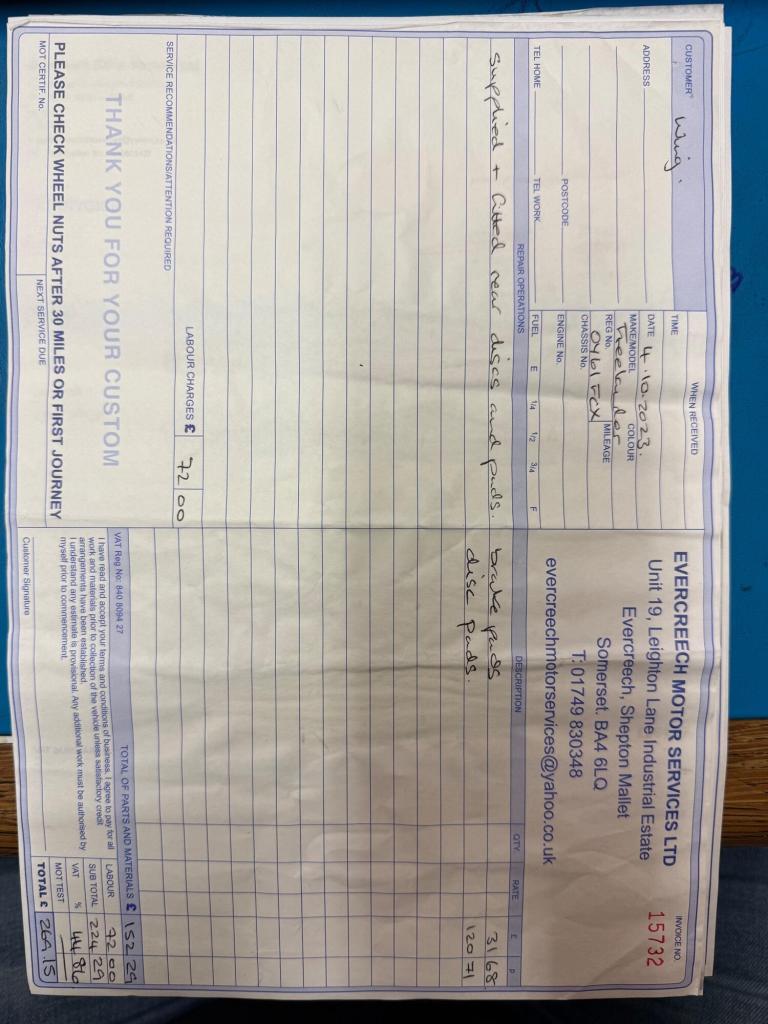 CUSTOMER Wing.
ADDRESS
POSTCODE
TEL HOME TEL WORK
WHEN RECEIVED
TIME
DATE 4.10.2023.
MAKE/MODEL COLOUR
Freelander
REG No. MILEAGE
OY61 FCX
CHASSIS No.
ENGINE No.
FUEL E 1/4 1/2 3/4 F
EVERCREECH MOTOR SERVICES LTD
Unit 19, Leighton Lane Industrial Estate
Evercreech, Shepton Mallet
Somerset. BA4 6LQ
T: 01749 830348
evercreechmotorservices@yahoo.co.uk
INVOICE NO.
15732
REPAIR OPERATIONS DESCRIPTION QTY RATE £ P
supplied + fitted rear discs and pads. brake pads 31 68
disc pads. 120 71
LABOUR CHARGES £ 72 00
SERVICE RECOMMENDATIONS/ATTENTION REQUIRED
THANK YOU FOR YOUR CUSTOM
PLEASE CHECK WHEEL NUTS AFTER 30 MILES OR FIRST JOURNEY
MOT CERTIF. No. NEXT SERVICE DUE
TOTAL OF PARTS AND MATERIALS £ 152 29
VAT Reg No: 840 8094 27
I have read and accept your terms and conditions of business. I agree to pay for all
work and materials prior to collection of the vehicle unless satisfactory credit
arrangements have been established.
I understand any estimate is provisional. Any additional work must be authorised by
myself prior to commencement.
Customer Signature
LABOUR 72 00
SUB TOTAL 224 29
VAT % 44 86
MOT TEST
TOTAL £ 269.15